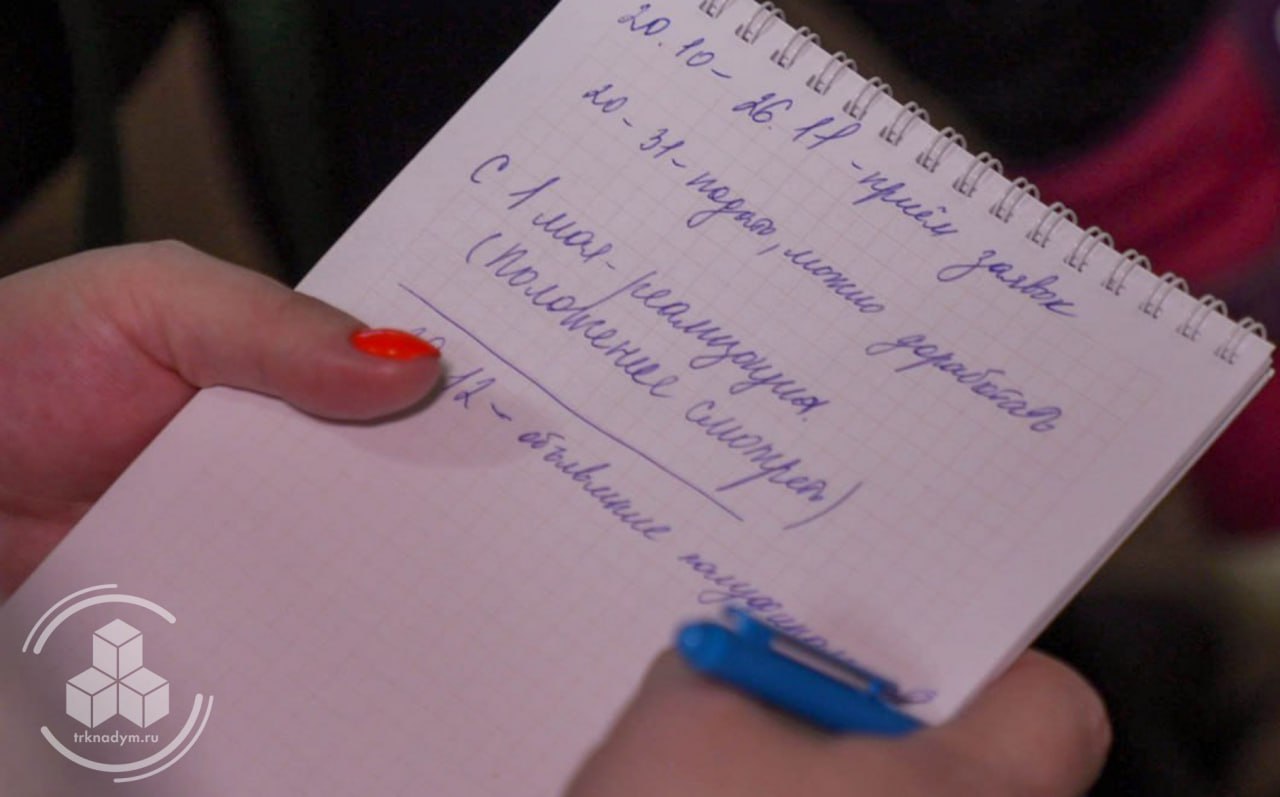 20.10 - 26.11 - приём заявок
20 - 31 - подать, можно доработать
С 1 мая - реализация.
(положение смотреть)
12 - объявление
trknadym.ru